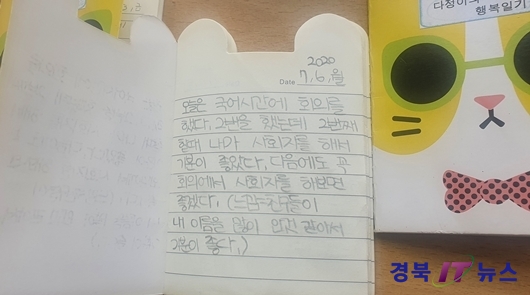 다정이의
행복일기
2020
Date 7, 6, 월
오늘은 국어시간에 회의를
했다. 2번을 했는데 2번째
할때 내가 사회자를 해서
기분이 좋았다. 다음에도 꼭
회의에서 사회자를 해보면
좋겠다. (느낌=친구들이
내 이름을 많이 안 것 같아서
기분이 좋다.)
경북 IT 뉴스